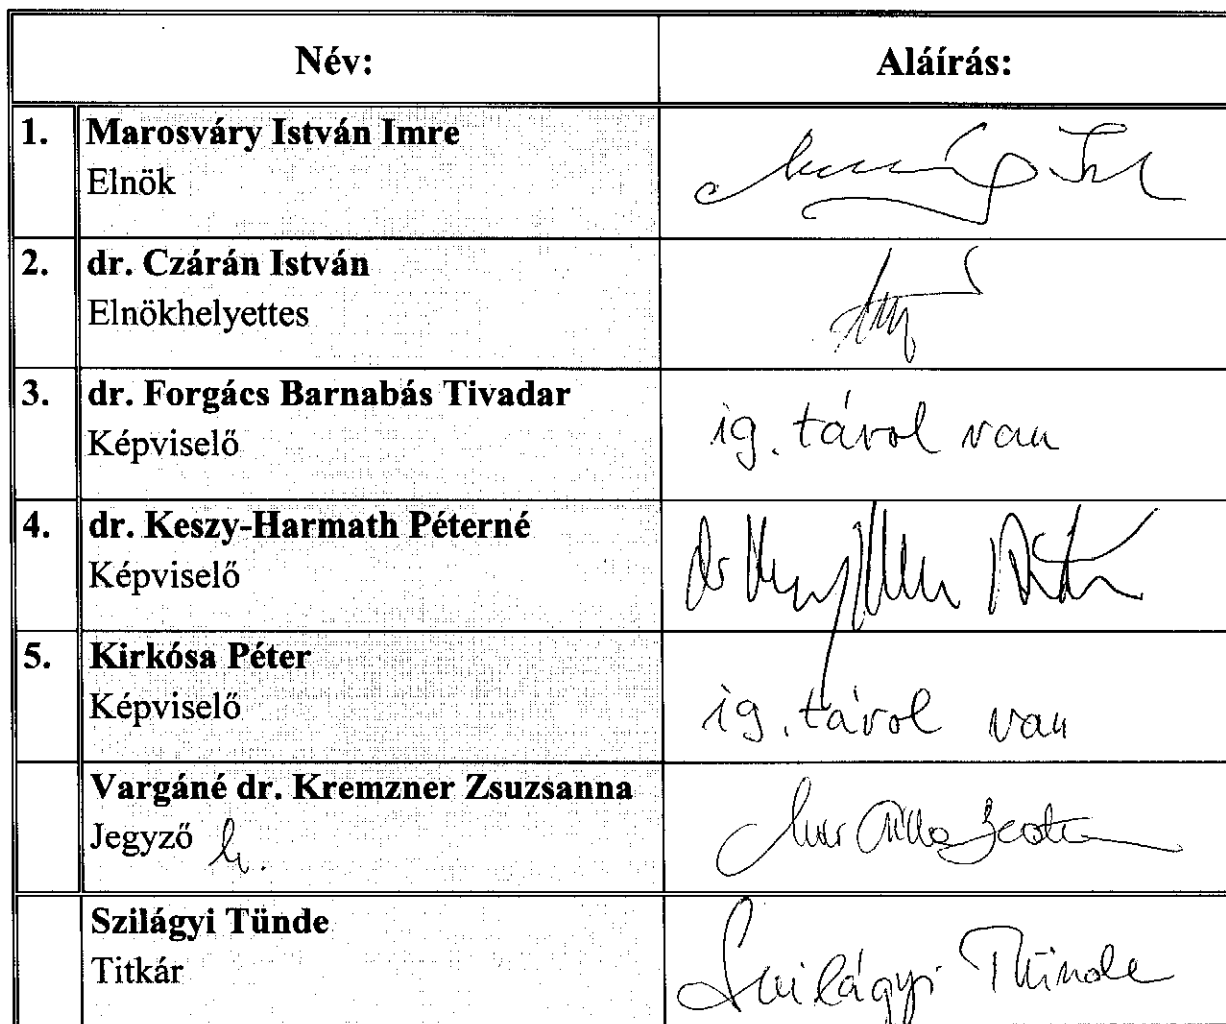 Név: Aláírás:
1. Marosváry István Imre
Elnök
2. dr. Czárán István
Elnökhelyettes
3. dr. Forgács Barnabás Tivadar
Képviselő
ig. távol van
4. dr. Keszy-Harmath Péterné
Képviselő
dr
5. Kirkósa Péter
Képviselő
ig. távol van
Vargáné dr. Kremzner Zsuzsanna
Jegyző h.
Szilágyi Tünde
Titkár
Szilágyi Tünde